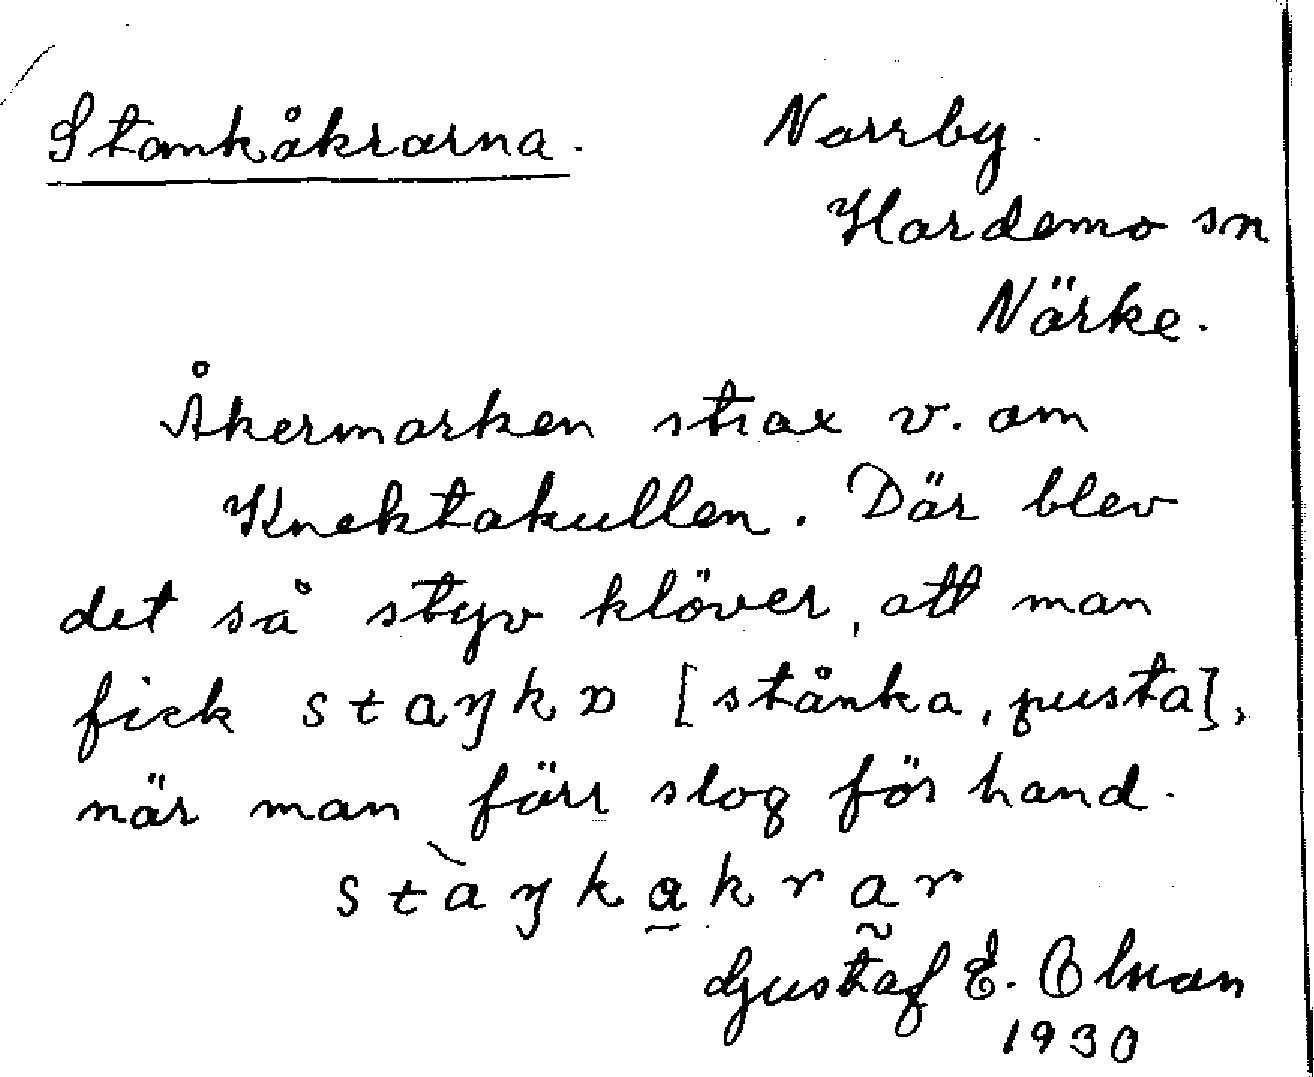 Stankåkrarna. Norrby.
Hardemo sn
Närke.
Åkermarken strax v. om
Knektakullen. Där blev
det så styv klöver, att man
fick staŋka [stånka, pusta],
när man förr slog för hand.
stàŋkakrar
Gustaf E.
1930